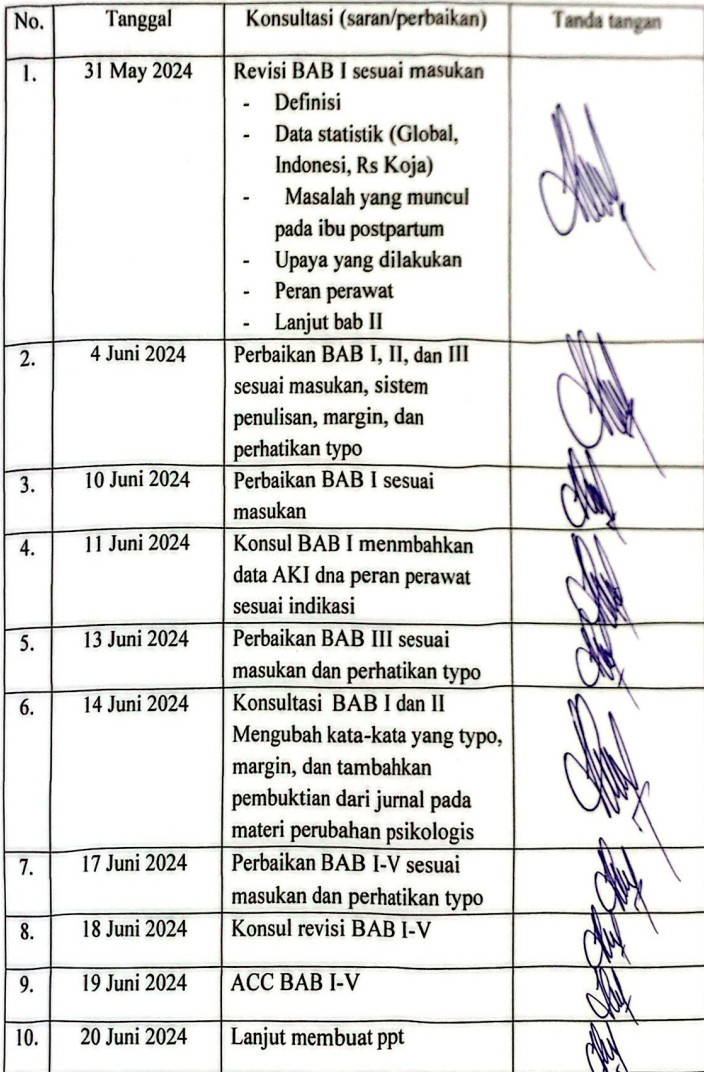 No. Tanggal Konsultasi (saran/perbaikan) Tanda tangan
1. 31 May 2024 Revisi BAB I sesuai masukan
- Definisi
- Data statistik (Global,
Indonesi, Rs Koja)
- Masalah yang muncul
pada ibu postpartum
- Upaya yang dilakukan
- Peran perawat
- Lanjut bab II
2. 4 Juni 2024 Perbaikan BAB I, II, dan III
sesuai masukan, sistem
penulisan, margin, dan
perhatikan typo
3. 10 Juni 2024 Perbaikan BAB I sesuai
masukan
4. 11 Juni 2024 Konsul BAB I menmbahkan
data AKI dna peran perawat
sesuai indikasi
5. 13 Juni 2024 Perbaikan BAB III sesuai
masukan dan perhatikan typo
6. 14 Juni 2024 Konsultasi BAB I dan II
Mengubah kata-kata yang typo,
margin, dan tambahkan
pembuktian dari jurnal pada
materi perubahan psikologis
7. 17 Juni 2024 Perbaikan BAB I-V sesuai
masukan dan perhatikan typo
8. 18 Juni 2024 Konsul revisi BAB I-V
9. 19 Juni 2024 ACC BAB I-V
10. 20 Juni 2024 Lanjut membuat ppt